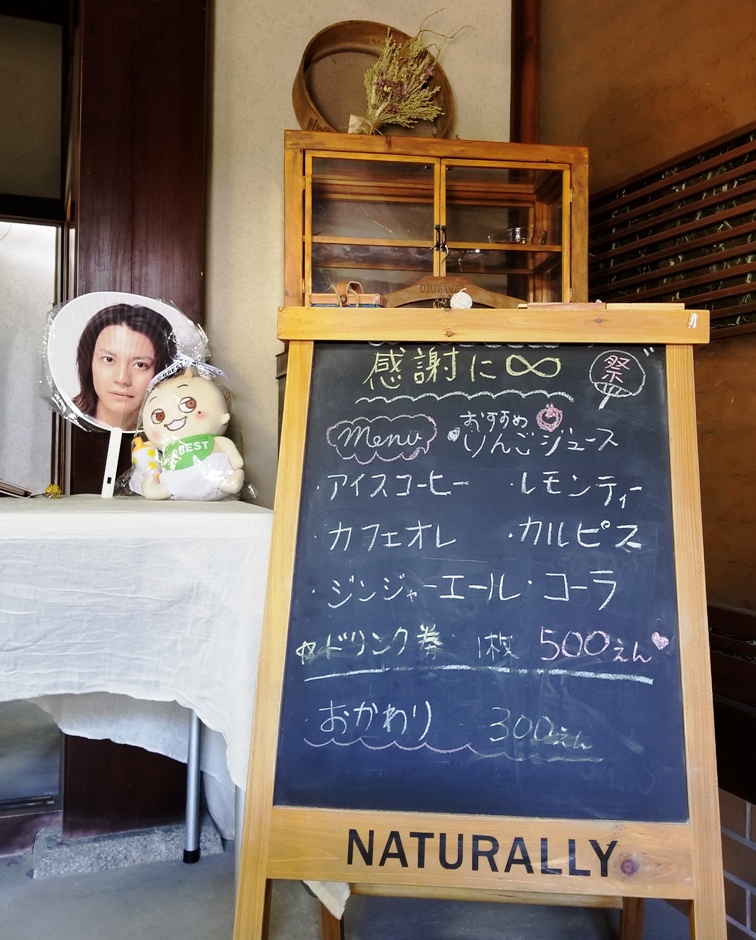 感謝に∞
祭
Menu
おすすめ
りんごジュース
・アイスコーヒー ・レモンティー
・カフェオレ ・カルピス
・ジンジャーエール・コーラ
☆ドリンク券 1枚 500えん
おかわり 300えん
NATURALLY
BEST